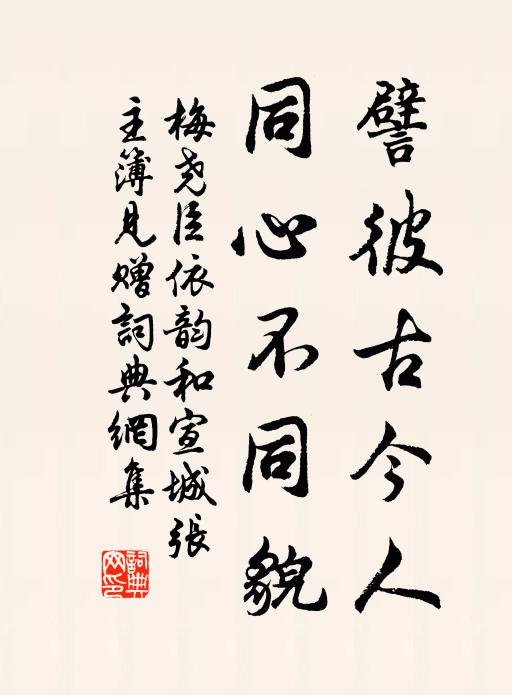 譬彼古今人
同心不同貌
梅尧臣依韵和宣城張
主簿見贈詞典網集
詞典
网印